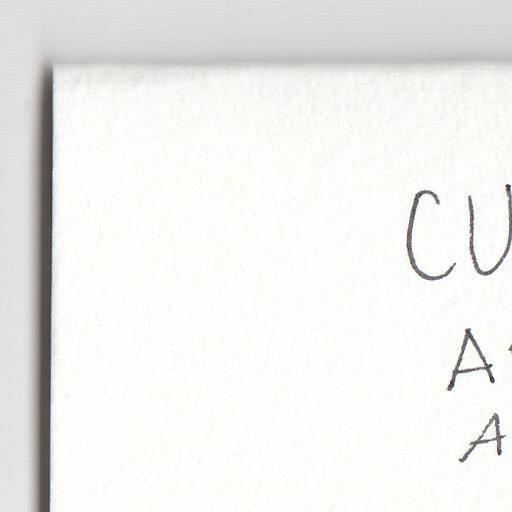 CU
A
A